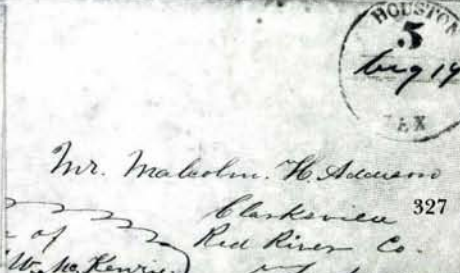 HOUSTON
5
Aug 14
TEX
Mr. Malcolm. H. Addison
Clarksville
327
of Red River Co.
Wm. McKenzie